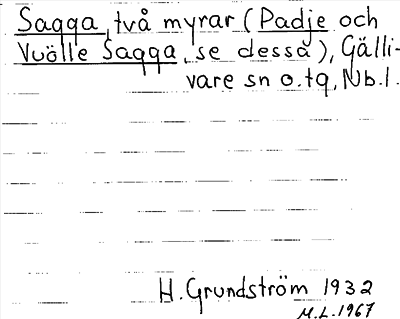 Sagga, två myrar (Padje och
Vuölle Sagga, se dessa), Gälli-
vare sn o. tg, Nb.l.
H. Grundström 1932
M.L. 1967